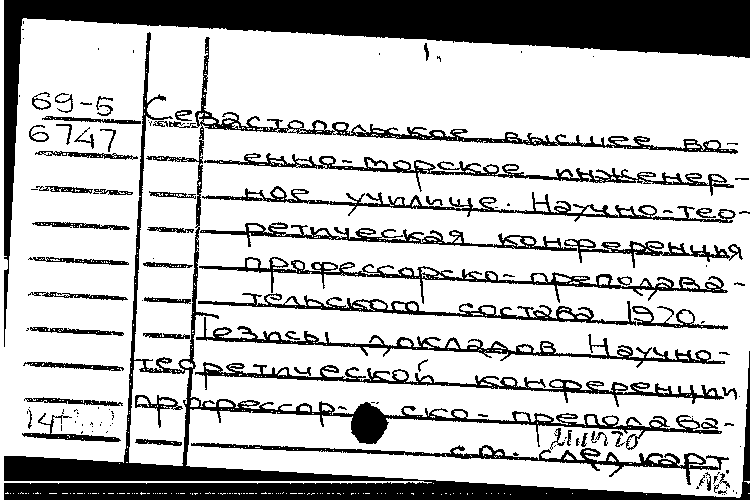 1.
69-5 Севастопольское высшее во-
6747
енно-морское инженер-
ное училище. Научно-тео-
ретическая конференция
профессорско-преподава-
тельского состава. 1970.
Тезисы докладов Научно-
теоретической конференции
профессор-ско-преподава-
см. след карт.